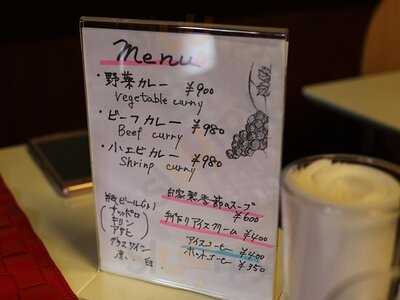 Menu
・野菜カレー ¥900
Vegetable curry
・ビーフカレー ¥980
Beef curry
・小エビカレー ¥980
Shrimp curry
自家製季節のスープ
¥600
手作りアイスクリーム ¥400
アイスコーヒー ¥400
ホットコーヒー ¥350
サッポロ
キリン
アサヒ
グラスワイン
赤、白